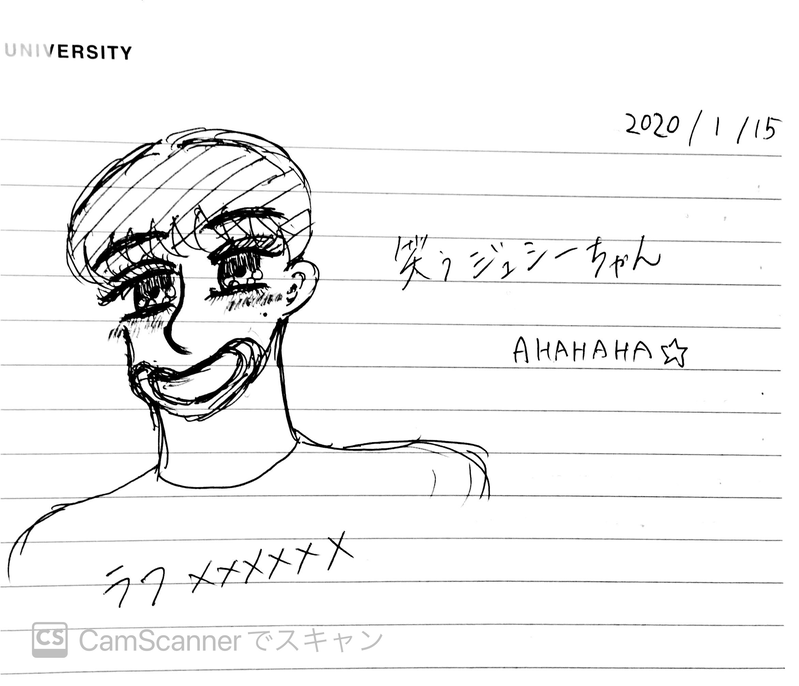 UNIVERSITY
2020/1/15
笑うジュシーちゃん
AHAHAHA☆
ラフ××××××
CS CamScanner でスキャン